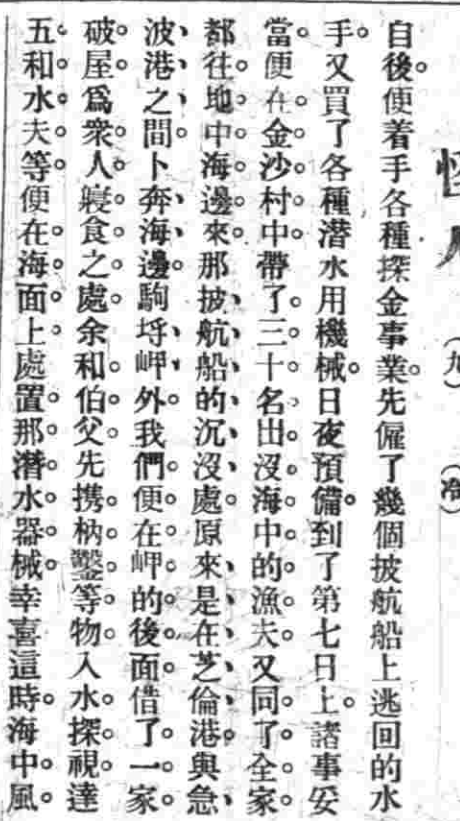 （九）　（冷）
自後便着手各種探金事業先僱了幾個披航船上逃回的水
手又買了各種潛水用機械日夜預備到了第七日上諸事妥
當便在金沙村中帶了三十名出沒海中的漁夫又同了全家
都往地中海邊來那披航船的沉沒處原來是在芝倫港與急
波港之間卜奔海邊駒垺岬外我們便在岬的後面借了一家
破屋爲衆人寢食之處余和伯父先携枘鑿等物入水探視達
五和水夫等便在海面上處置那潛水器械幸喜這時海中風